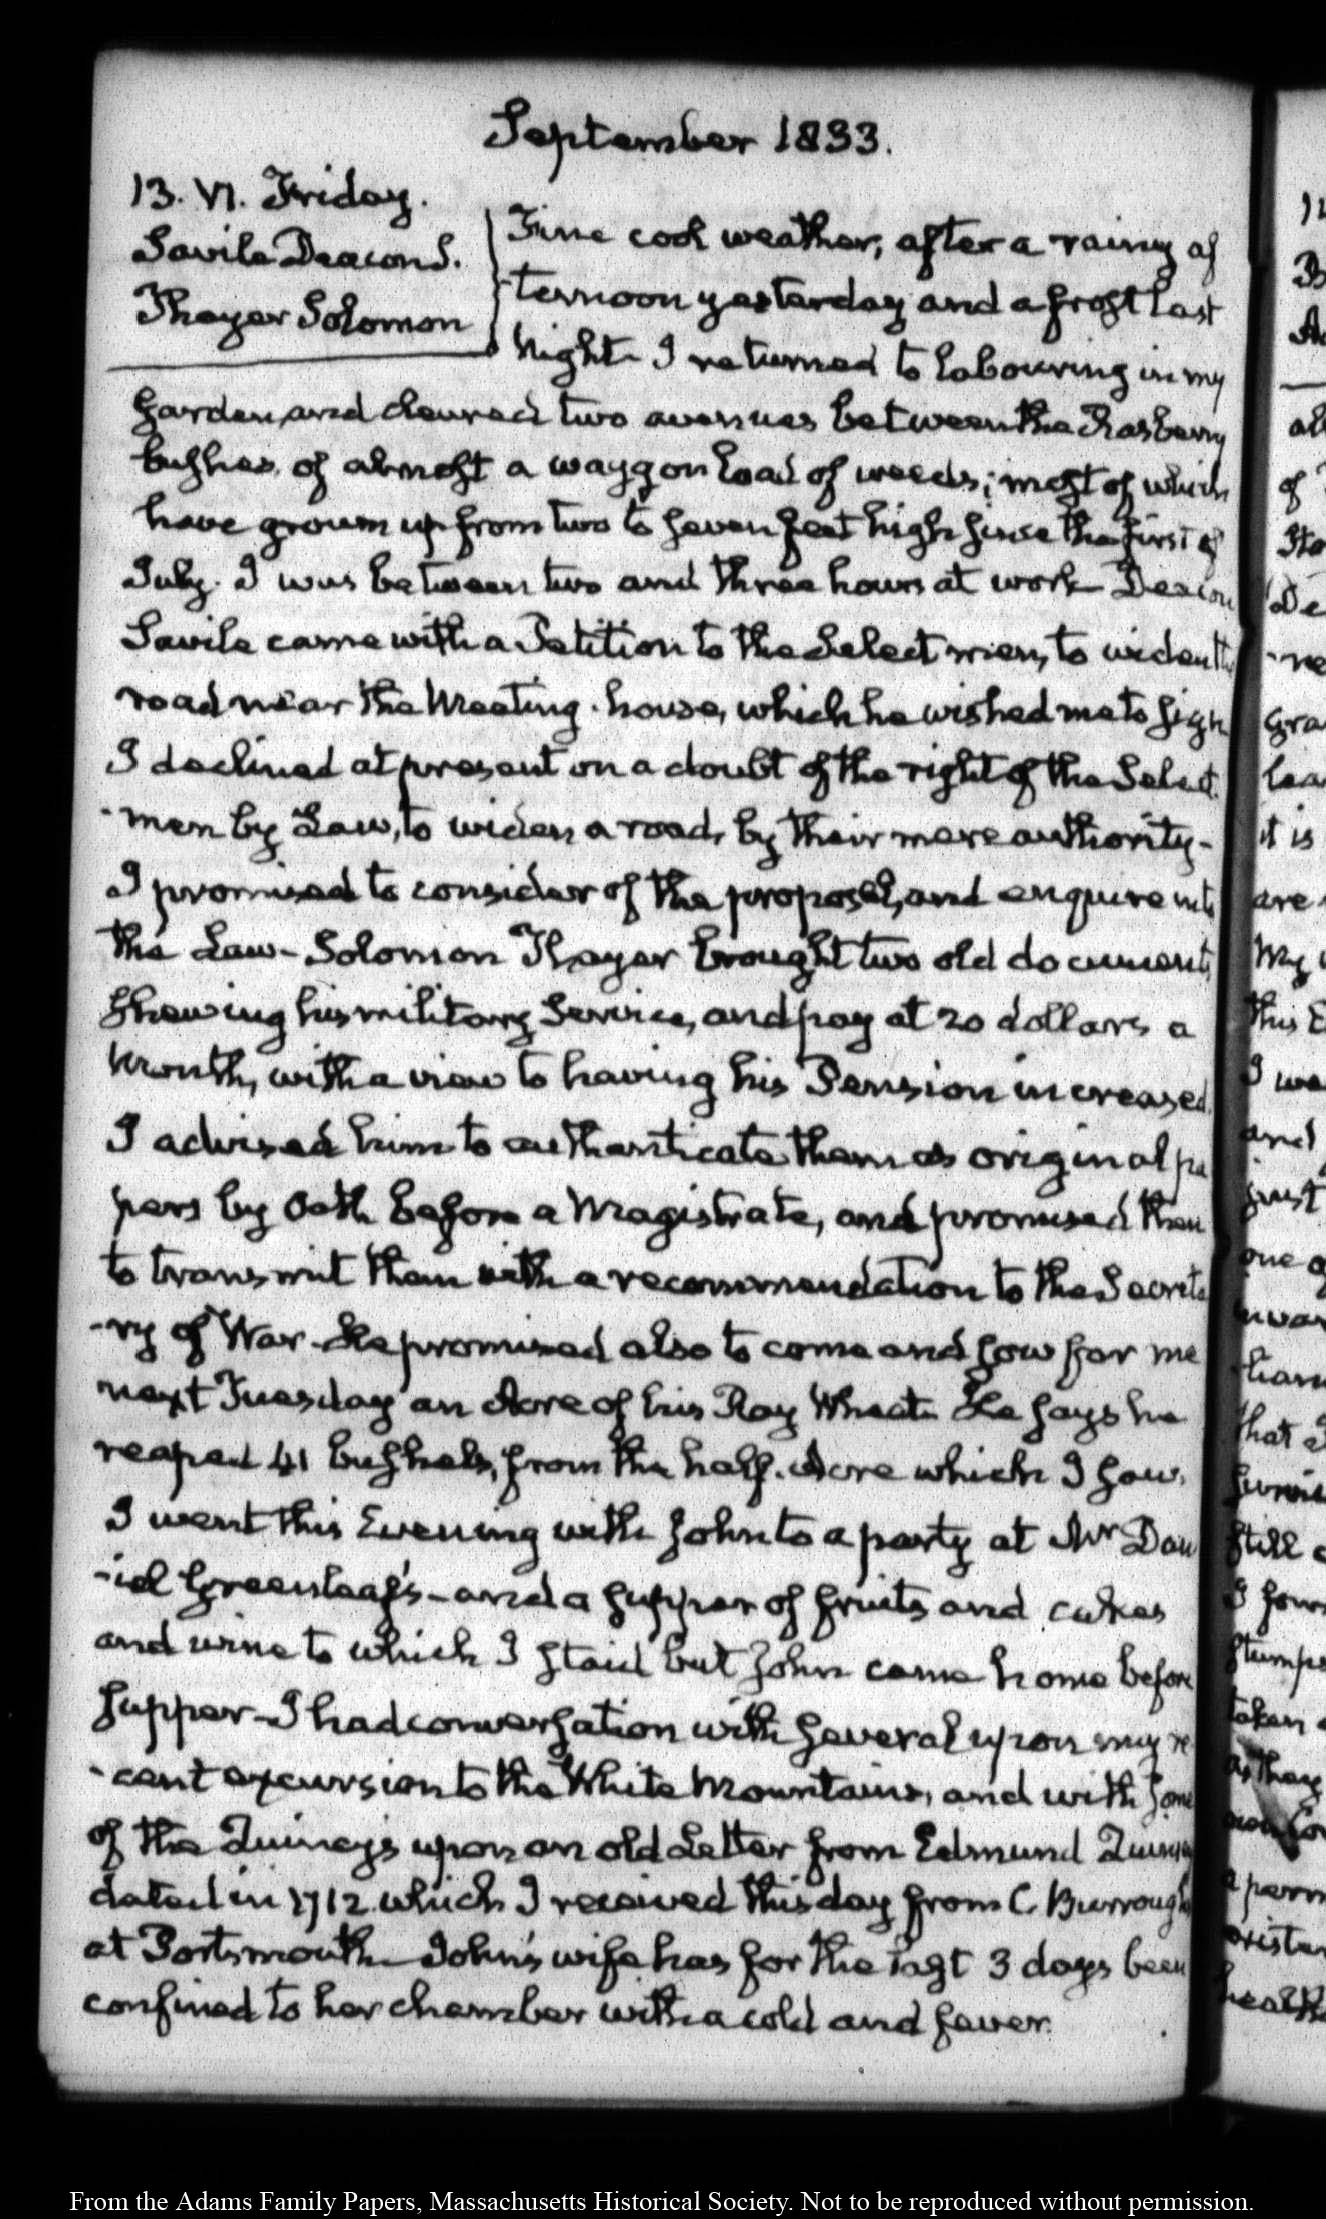 September 1833.
13. VI. Friday.
Savile Deacon S.
Thayer Solomon
Fine cool weather, after a rainy af
ternoon yesterday and a frost last
Night. I returned to labouring in my
garden, and cleared two avenues between the Rasberry
bushes of almost a waggon load of weeds; most of which
have grown up from two to seven feet high since the first of
July. I was between two and three hours at work Deacon
Savile came with a Petition to the Select men, to widen the
road near the Meeting-house, which he wished me to sign
I declined at present on a doubt of the right of the Select-
-men by Law, to widen a road, by their mere authority-
I promised to consider of the proposal, and enquire into
the Law- Solomon Thayer brought two old documents
shewing his military Service, and pay at 20 dollars a
Month, with a view to having his Pension increased.
I advised him to authenticate them as original pa
pers by Oath before a Magistrate, and promised then
to transmit them with a recommendation to the Secreta
-ry of War- He promised also to come and sow for me
next Tuesday an Acre of his Ray Wheat. He says he
reaped 41 bushels, from the half-Acre which I saw.
I went this Evening with John to a party at Mr Dan
-iel Greenleaf's- and a supper of fruits and cakes
and wine to which I staid but John came home before
supper- I had conversation with several upon my re
-cent excursion to the White Mountains, and with some
of the Quincy's upon an old Letter from Edmund Quincy
dated in 1712 which I received this day from C. Burroughs
at Portsmouth- John's wife has for the last 3 days been
confined to her chamber with a cold and fever.
From the Adams Family Papers, Massachusetts Historical Society. Not to be reproduced without permission.